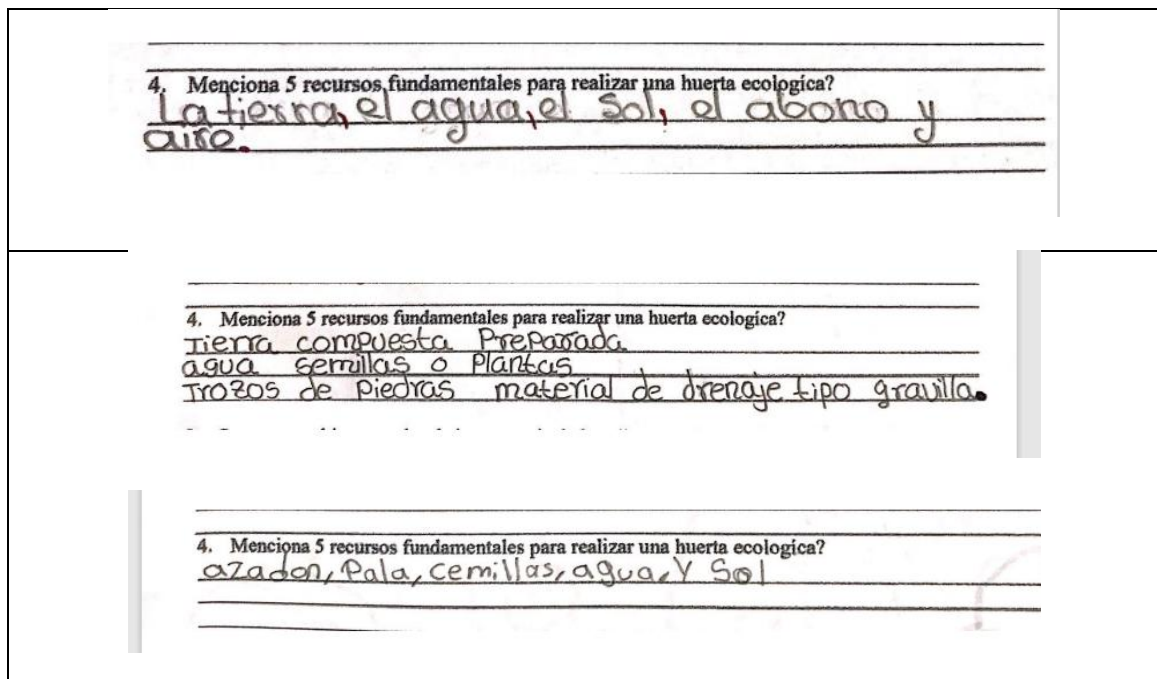 4. Menciona 5 recursos fundamentales para realizar una huerta ecologica?
La tierra, el agua, el Sol, el abono y
aire.
4. Menciona 5 recursos fundamentales para realizar una huerta ecologica?
Tierra compuesta Preparada
agua semillas o Plantas
Trozos de Piedras material de drenaje tipo gravilla.
4. Menciona 5 recursos fundamentales para realizar una huerta ecologica?
azadon, Pala, cemillas, agua, Y Sol